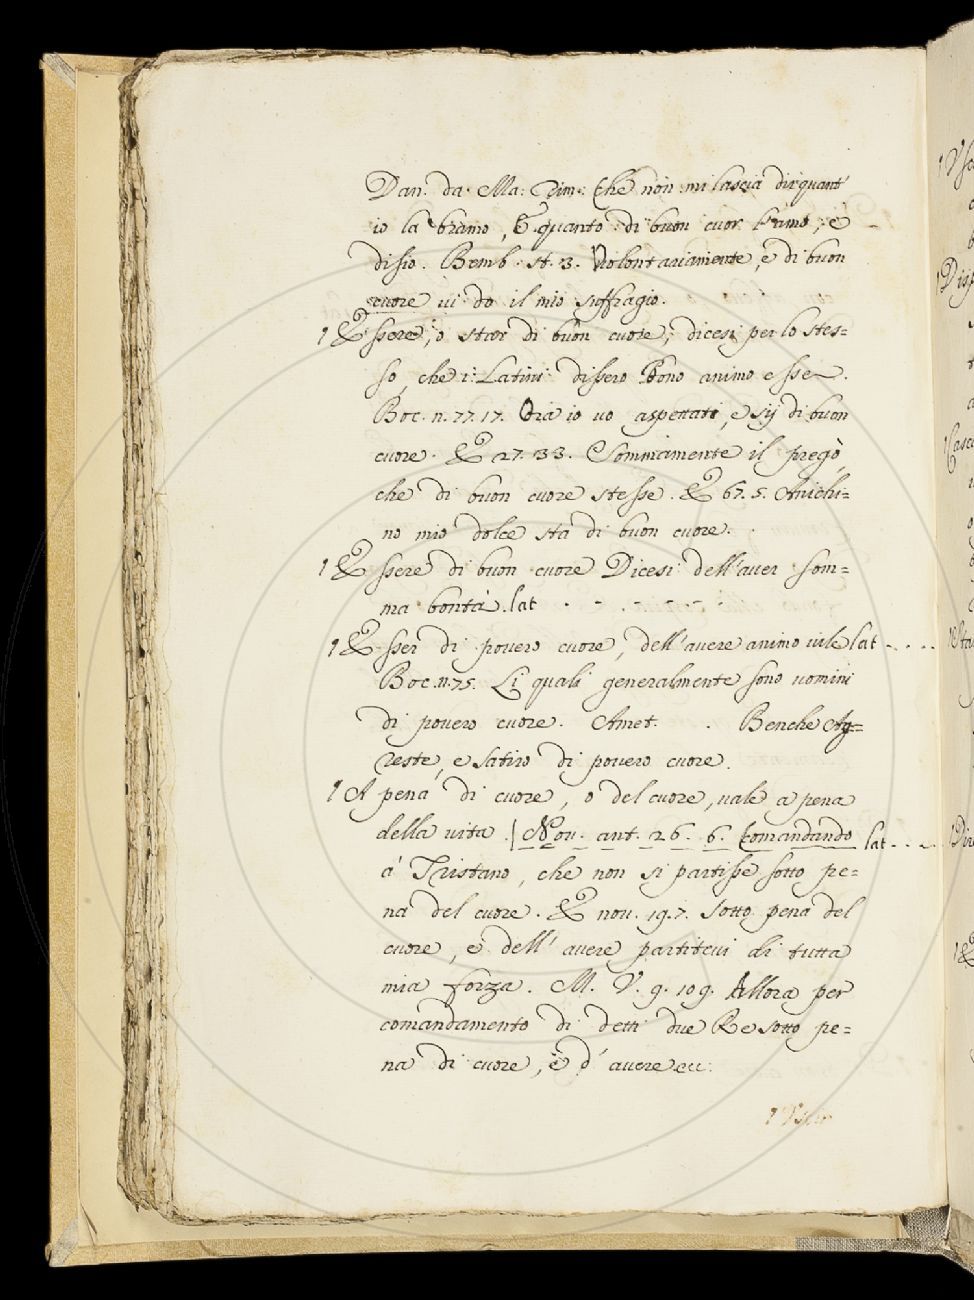 Dan. da. Ma: Rim: Che non mi lascia dir quant'
io la bramo, E quanto di buon cuor l'amo, e
disio. Bemb. st. 3. Volontariamente, e di buon
cuore ui do il mio suffragio.
¶ Essere, o star di buon cuore; dicesi per lo stes=
so, che i Latini dissero Bono animo esse.
Boc. n. 77. 17. Ora io uo aspettati, e sij di buon
cuore. E 27. 33. Sommamente il pregò,
che di buon cuore stesse. E 67. 5. Anichi=
no mio dolce sta di buon cuore.
¶ Essere di buon cuore Dicesi dell'auer som=
ma bontà. lat . - . - . - -
¶ Esser di pouero cuore, dell'auere animo uile lat - . . . .
Boc. n. 75. Li quali generalmente sono uomini
di pouero cuore. Amet. . Benche Ag=
reste, e satiro di pouero cuore.
¶ A pena di cuore, o del cuore, uale a pena
della uita. | Nou. ant. 26. 6. Comandando lat - . . - .
à Tristano, che non si partisse sotto pe=
na del cuore. E nou. 19. 7. Sotto pena del
cuore, e dell'auere partiteui di tutta
mia forza. M. V. 9. 109. Allora per
comandamento di detti due Re sotto pe=
na di cuore, e d'auere ecc.